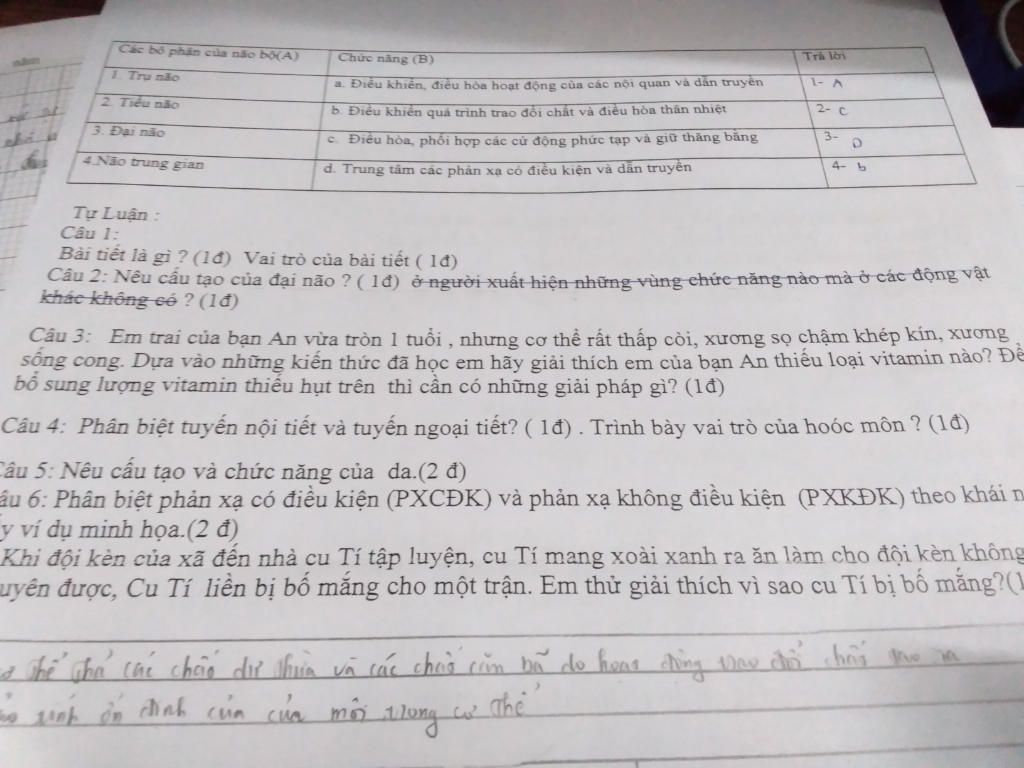 Các bộ phận của não bộ(A) Chức năng (B) Trả lời
1. Trụ não a. Điều khiển, điều hòa hoạt động của các nội quan và dẫn truyền 1- A
2. Tiểu não b. Điều khiển quá trình trao đổi chất và điều hòa thân nhiệt 2- C
3. Đại não c. Điều hòa, phối hợp các cử động phức tạp và giữ thăng bằng 3- D
4.Não trung gian d. Trung tâm các phản xạ có điều kiện và dẫn truyền 4- b
Tự Luận :
Câu 1:
Bài tiết là gì ? (1đ) Vai trò của bài tiết ( 1đ)
Câu 2: Nêu cấu tạo của đại não ? ( 1đ) ở người xuất hiện những vùng chức năng nào mà ở các động vật
khác không có ? (1đ)
Câu 3: Em trai của bạn An vừa tròn 1 tuổi , nhưng cơ thể rất thấp còi, xương sọ chậm khép kín, xương
sống cong. Dựa vào những kiến thức đã học em hãy giải thích em của bạn An thiếu loại vitamin nào? Để
bổ sung lượng vitamin thiếu hụt trên thì cần có những giải pháp gì? (1đ)
Câu 4: Phân biệt tuyến nội tiết và tuyến ngoại tiết? ( 1đ) . Trình bày vai trò của hoóc môn ? (1đ)
Câu 5: Nêu cấu tạo và chức năng của da.(2 đ)
âu 6: Phân biệt phản xạ có điều kiện (PXCĐK) và phản xạ không điều kiện (PXKĐK) theo khái n
y ví dụ minh họa.(2 đ)
Khi đội kèn của xã đến nhà cu Tí tập luyện, cu Tí mang xoài xanh ra ăn làm cho đội kèn không
uyên được, Cu Tí liền bị bố mắng cho một trận. Em thử giải thích vì sao cu Tí bị bố mắng?(1
thể thả các chất dư thừa và các chất cặn bã do hoạt động trao đổi chất tạo ra
tính ổn định của của môi trong cơ thể